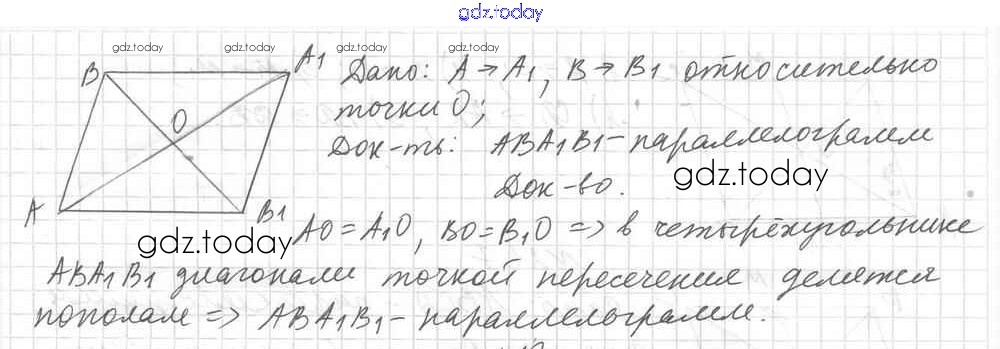 gdz.today
gdz.today gdz.today
B A1
O
A B1
Дано: A→A1, B→B1 относительно
точки O;
Док-ть: ABA1B1-параллелограмм
gdz.today
Док-во.
AO=A1O, BO=B1O => в четырёхугольнике
gdz.today
ABA1B1 диагонали точкой пересечения делятся
пополам => ABA1B1-параллелограмм.